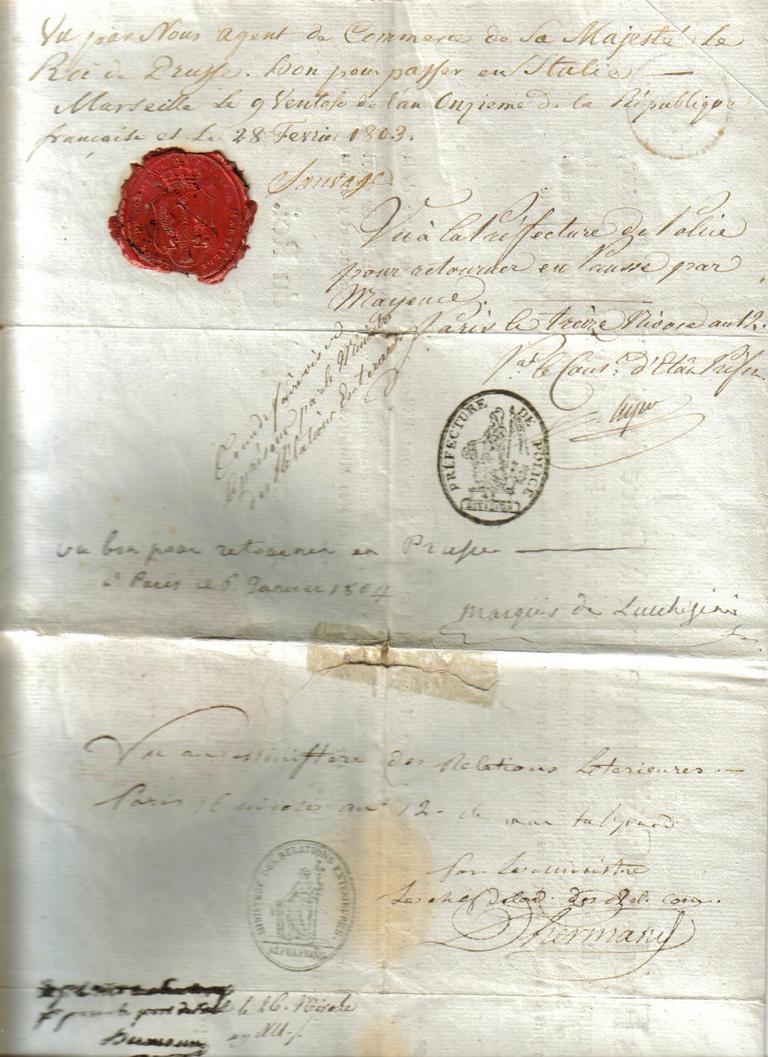 Vu par Nous agent de Commerce de Sa Majesté Le
Roi de Prusse. bon pour passer en Italie
Marseille Le 9 Ventose de l'an Onzieme de la République
française et Le 28 Fevrier 1803.
Sauvage
Vu à la Préfecture de Police
pour retourner en Prusse par
Mayence.
Paris le treize Nivose an 12.
Par le Cons.r d'Etat Préfet
PRÉFECTURE DE POLICE
DIVISION
par le Ministre
des Rélations Exterieures
vu bon pour retourner en Prusse
à Paris le 6 Janvier 1804
Marquis de Lucchesini
Vu au Ministère des Relations Exterieures
Paris 16 nivose an 12
Par Le ministre
Le chef de la des Rel. com.
Dhermand
MINISTERE DES RELATIONS EXTERIEURES
RÉP. FRANC.
le 26 Nivose
an XII